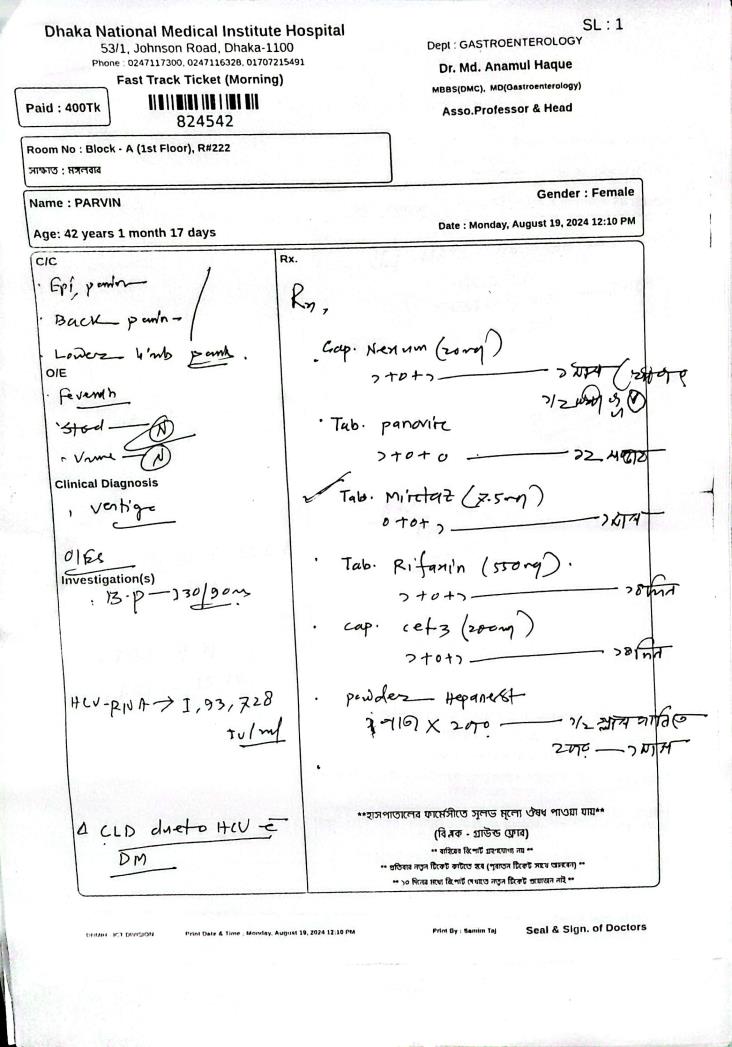 SL : 1
Dhaka National Medical Institute Hospital
53/1, Johnson Road, Dhaka-1100
Phone : 0247117300, 0247116328, 01707215491
Fast Track Ticket (Morning)
Dept : GASTROENTEROLOGY
Dr. Md. Anamul Haque
MBBS(DMC), MD(Gastroenterology)
Asso.Professor & Head
Paid : 400Tk
824542
Room No : Block - A (1st Floor), R#222
সাক্ষাত : মঙ্গলবার
Name : PARVIN
Gender : Female
Age: 42 years 1 month 17 days
Date : Monday, August 19, 2024 12:10 PM
C/C
Epi, pain
Back pain
Lower limb pain.
O/E
Feverish
Stool N
Urine N
Clinical Diagnosis
Vertigo
O/Es
Investigation(s)
B.P — 130/90
HCV-RNA → 1,93,728
IU/ml
Δ CLD due to HCV c̄
DM
Rx.
Rx,
Cap. Nexum (20mg)
১+০+১ — ১ মাস
Tab. panovite
১+০+০ — ১২ সপ্তাহ
Tab. Mirctaz (7.5mg)
০+০+১ — ১ মাস
Tab. Rifaxin (550mg).
১+০+১ — ১৪ দিন
Cap. cef-3 (200mg)
১+০+১ — ১৪ দিন
powder Hepanerst
X ২বার — ১/২ গ্লাস পানিতে
১ মাস
**হাসপাতালের ফার্মেসীতে সুলভ মূল্যে ঔষধ পাওয়া যায়**
(বি.ব্লক - গ্রাউন্ড ফ্লোর)
** বাহিরের রিপোর্ট গ্রহণযোগ্য নয় **
** প্রতিবার নতুন টিকেট কাটতে হবে (পুরাতন টিকেট সাথে আনবেন) **
** ১০ দিনের মধ্যে রিপোর্ট দেখাতে নতুন টিকেট প্রয়োজন নাই **
DNMIH ICT DIVISION
Print Date & Time : Monday, August 19, 2024 12:10 PM
Print By : Samim Taj
Seal & Sign. of Doctors